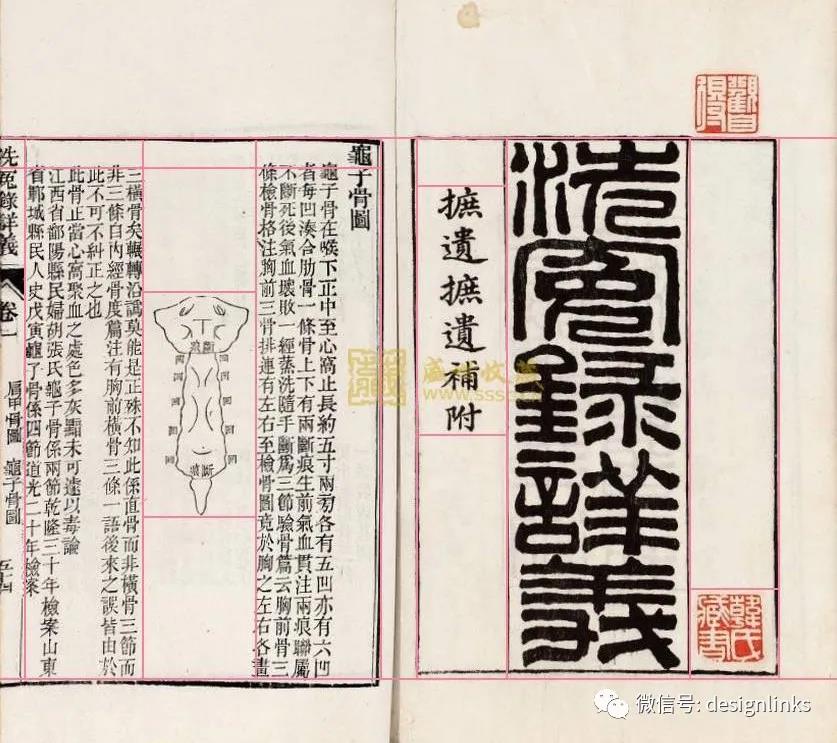 洗冤錄詳義
摭遺摭遺補附
韓氏藏書
龜子骨圖
龜子骨在喉下正中至心窩止長約五寸兩旁各有五凹亦有六凹
者每凹湊合肋骨一條骨上下有兩斷痕生前氣血貫注兩痕聯屬
不斷死後氣血壞敗一經蒸洗隨手斷爲三節驗骨篇云胸前骨三
條檢骨格注胸前三骨排連有左右至檢骨圖竟於胸之左右各畫
斷痕
凹 凹
凹 凹
凹 凹
凹 凹
凹 凹
斷痕
三橫骨矣輾轉沿譌莫能是正殊不知此係直骨而非橫骨三節而
非三條自內經骨度篇注有胸前橫骨三條一語後來之誤皆由於
此不可不糾正之也
此骨正當心窩聚血之處色多灰黯未可遽以毒論
江西省鄱陽縣民婦胡張氏龜子骨係兩節乾隆三十年檢案山東
省鄆城縣民人史戊寅龜子骨係四節道光二十年檢案
洗冤錄詳義 卷一 肩甲骨圖 龜子骨圖 五十四
微信号: designlinks